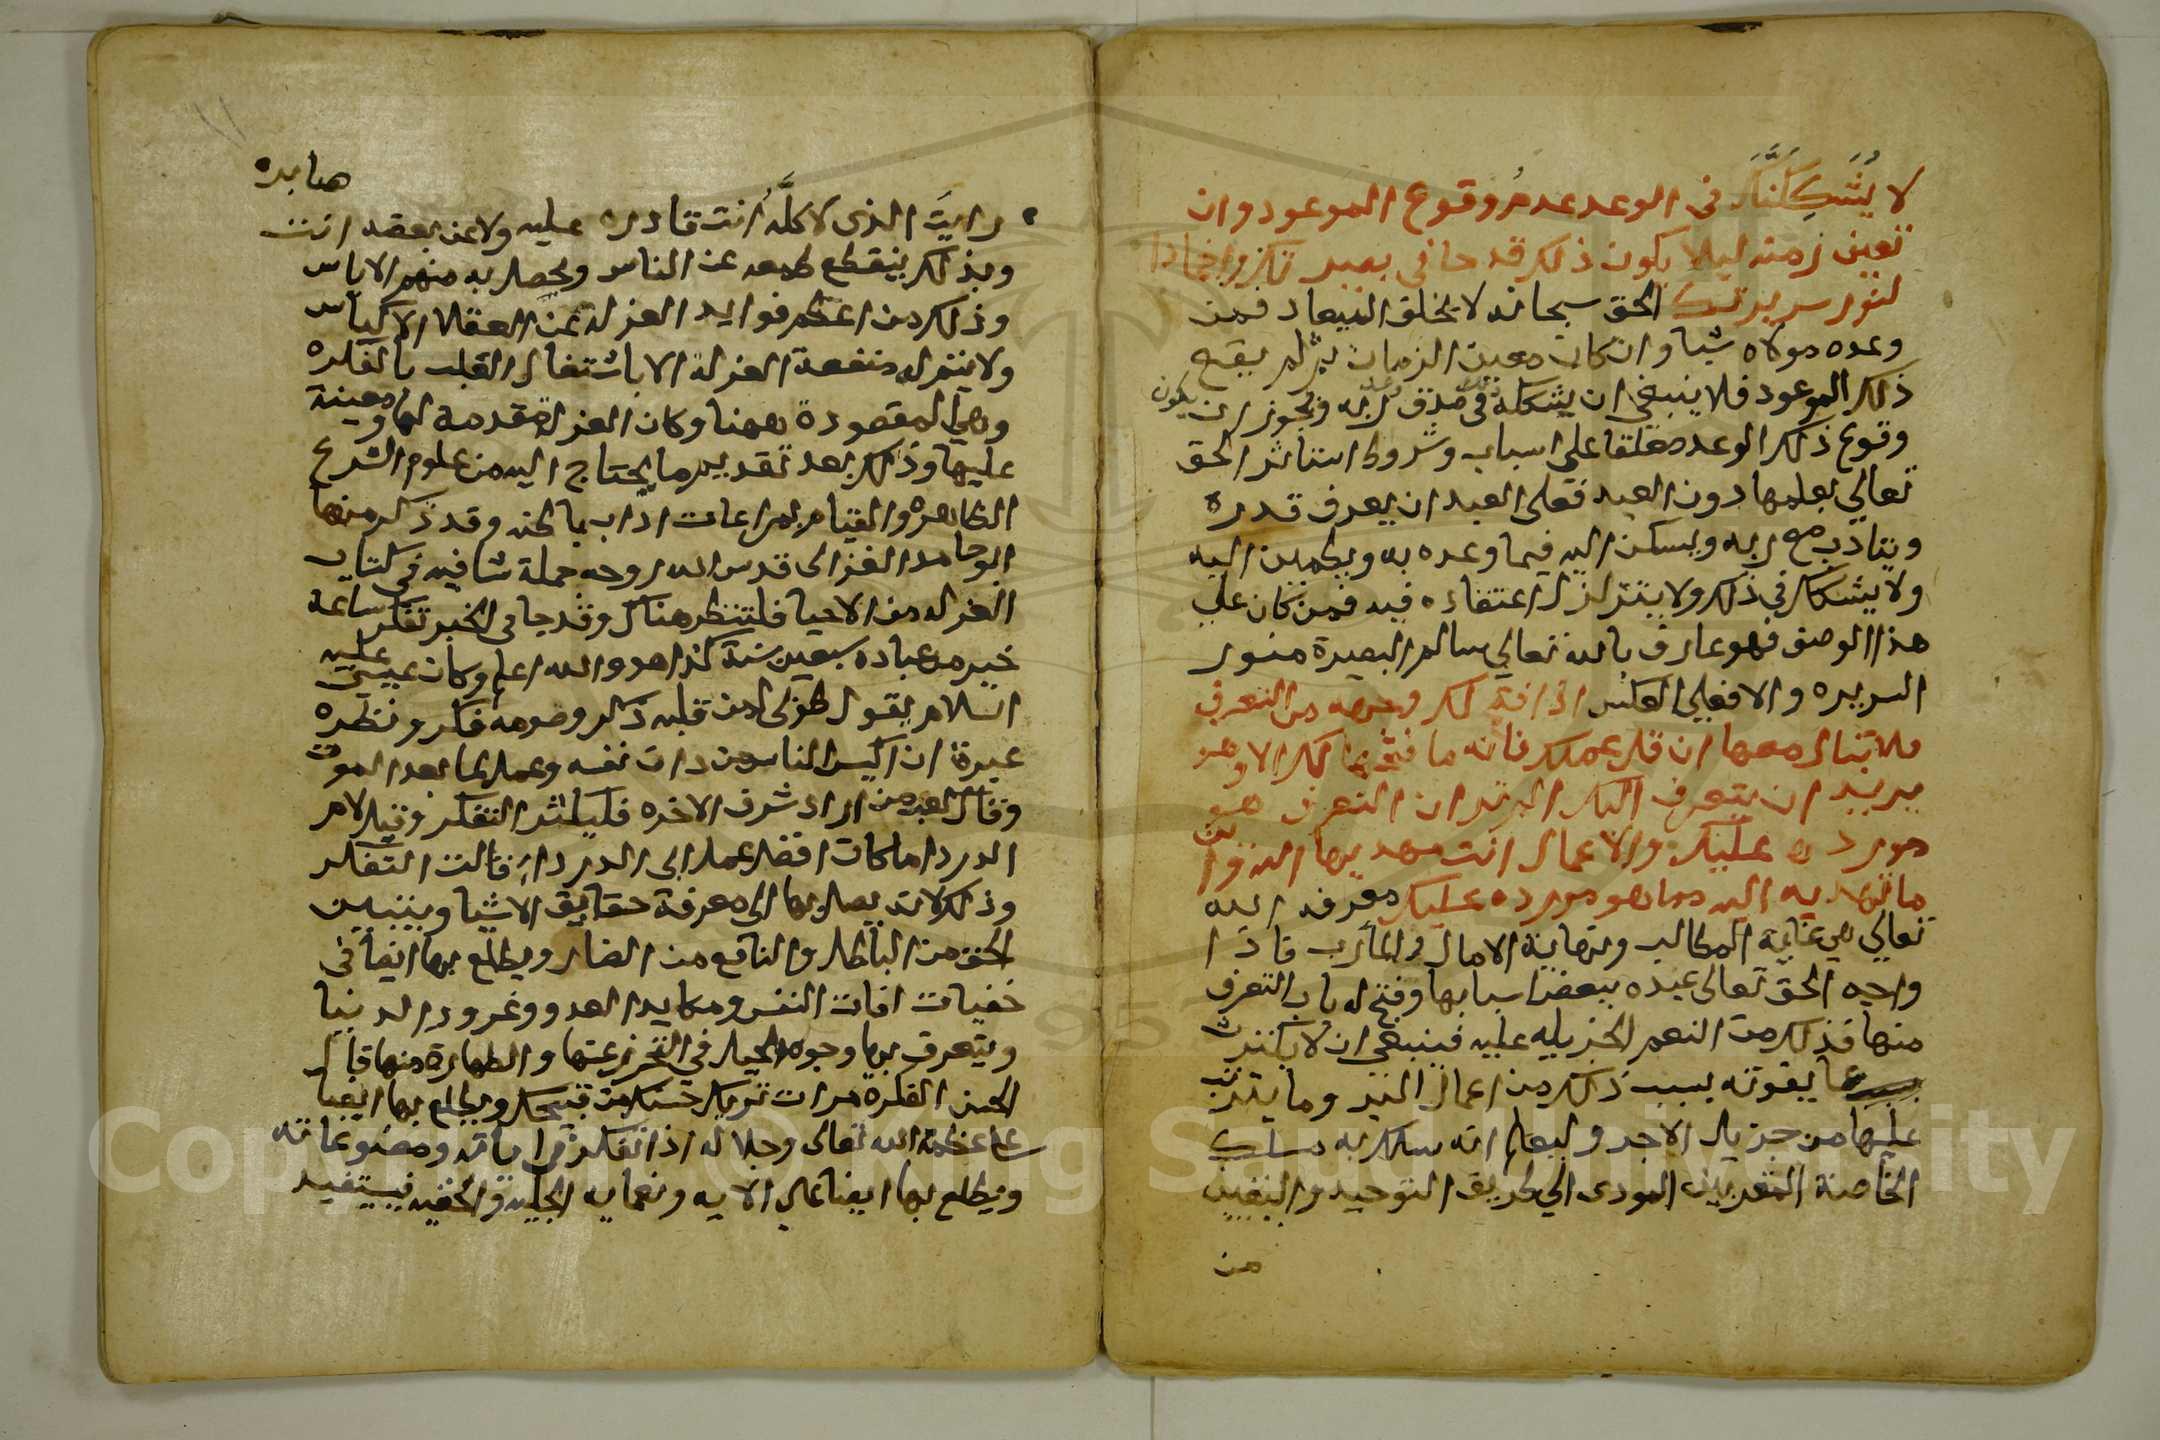 لا يُشَكِكَنَّكَ في الوعد عدمُ وقوع الموعود وان
تعين زمنه ليلا يكون ذلك قدحا في بصيرتك واخمادا
لنور سريرتك الحق سبحانه لا يخلف الميعاد فمن
وعده مولاه شيا وان كان معين الزمان ثم لم يقع
ذلك الموعود فلا ينبغي ان يشككه ذلك في صدق وعد ربه ويجوز ان يكون
وقوع ذلك الوعد معلقا على اسباب وشروط استاثر الحق
تعالي بعلمها دون العبد فعلى العبد ان يعرف قدره
ويتادب مع ربه ويسكن اليه فيما وعده به ويطمين اليه
ولا يشكك في ذلك ولا يتزلزل اعتقاده فيه فمن كان على
هذا الوصف فهو عارف بالله تعالي سالم البصيرة منور
السريره والا فعلي العكس اذا فتح لك وجهه من التعرف
فلا تبال معها ان قل عملك فانه ما فتحها لك الا وهو
يريد ان يتعرف اليك الم تر ان التعرف هو
مورده عليك والاعمال انت مهديها اليه واين
ما تهديه اليه مما هو مورده عليك معرفه الله
تعالي هي غاية المطالب ونهاية الامال والمآرب فاذا
واجه الحق تعالى عبده ببعض اسبابها وفتح له باب التعرف
منها فذلك من النعم الجزيله عليه فينبغي ان لا يكترث
بما يفوته بسبب ذلك من اعمال البر وما يترتب
عليها من جزيل الاجر وليعلم انه سلك به مسلك
الخاصة المقربين المودى الي طريق التوحيد واليقين
من
هنا بده
رايتَ الذى لا كلَّهُ انت قادره عليه ولا عن بعضه انت
وبذلك ينقطع طمعه عن الناس ويحصل به منهم الاياس
وذلك من اعظم فوايد العزلة عند العقلا الاكياس
ولا يتم له منفعة العزلة الا باشتغال القلب بالفكره
وهي المقصودة ههنا وكان العزلة مقدمة لها ومعينة
عليها وذلك بعد تقديم ما يحتاج اليه من علوم الشرع
الظاهره والقيام بمراعات اداب باطنه وقد ذكر منها
ابو حامد الغزالى قدس الله روحه جملة شافيه في كتاب
العزله من الاحيا فلتنظر هناك وقد جا في الخبر تفكر ساعة
خير من عباده سبعين سنة كذا هو والله اعلم وكان عيسى عليه
السلام يقول طوبى لمن قلبه ذكر وصومه فكر ونظره
عبرة ان اكيس الناس من دان نفسه وعمل لما بعد الموت
وقال كعب من اراد شرف الاخره فليكثر التفكر وقيل لام
الدردا ما كان افضل عمل ابى الدرداء قالت التفكر
وذلك لانه يصل بها الى معرفة حقايق الاشيا ويتبين
الحق من الباطل والنافع من الضار ويطلع بها ايضا في
خفيات افات النفس ومكايد العدو وغرور الدنيا
ويتعرف بها وجوه الحيل في التحرز عنها والطهارة منها قال
الحسن الفكرة مرات تريك حسنك من قبيحك ويطلع بها ايضا
على عظمة الله تعالى وجلاله اذا تفكر في اياته ومصنوعاته
ويطلع بها ايضا على الايه ونعمايه الجليه والخفيه فيستفيد